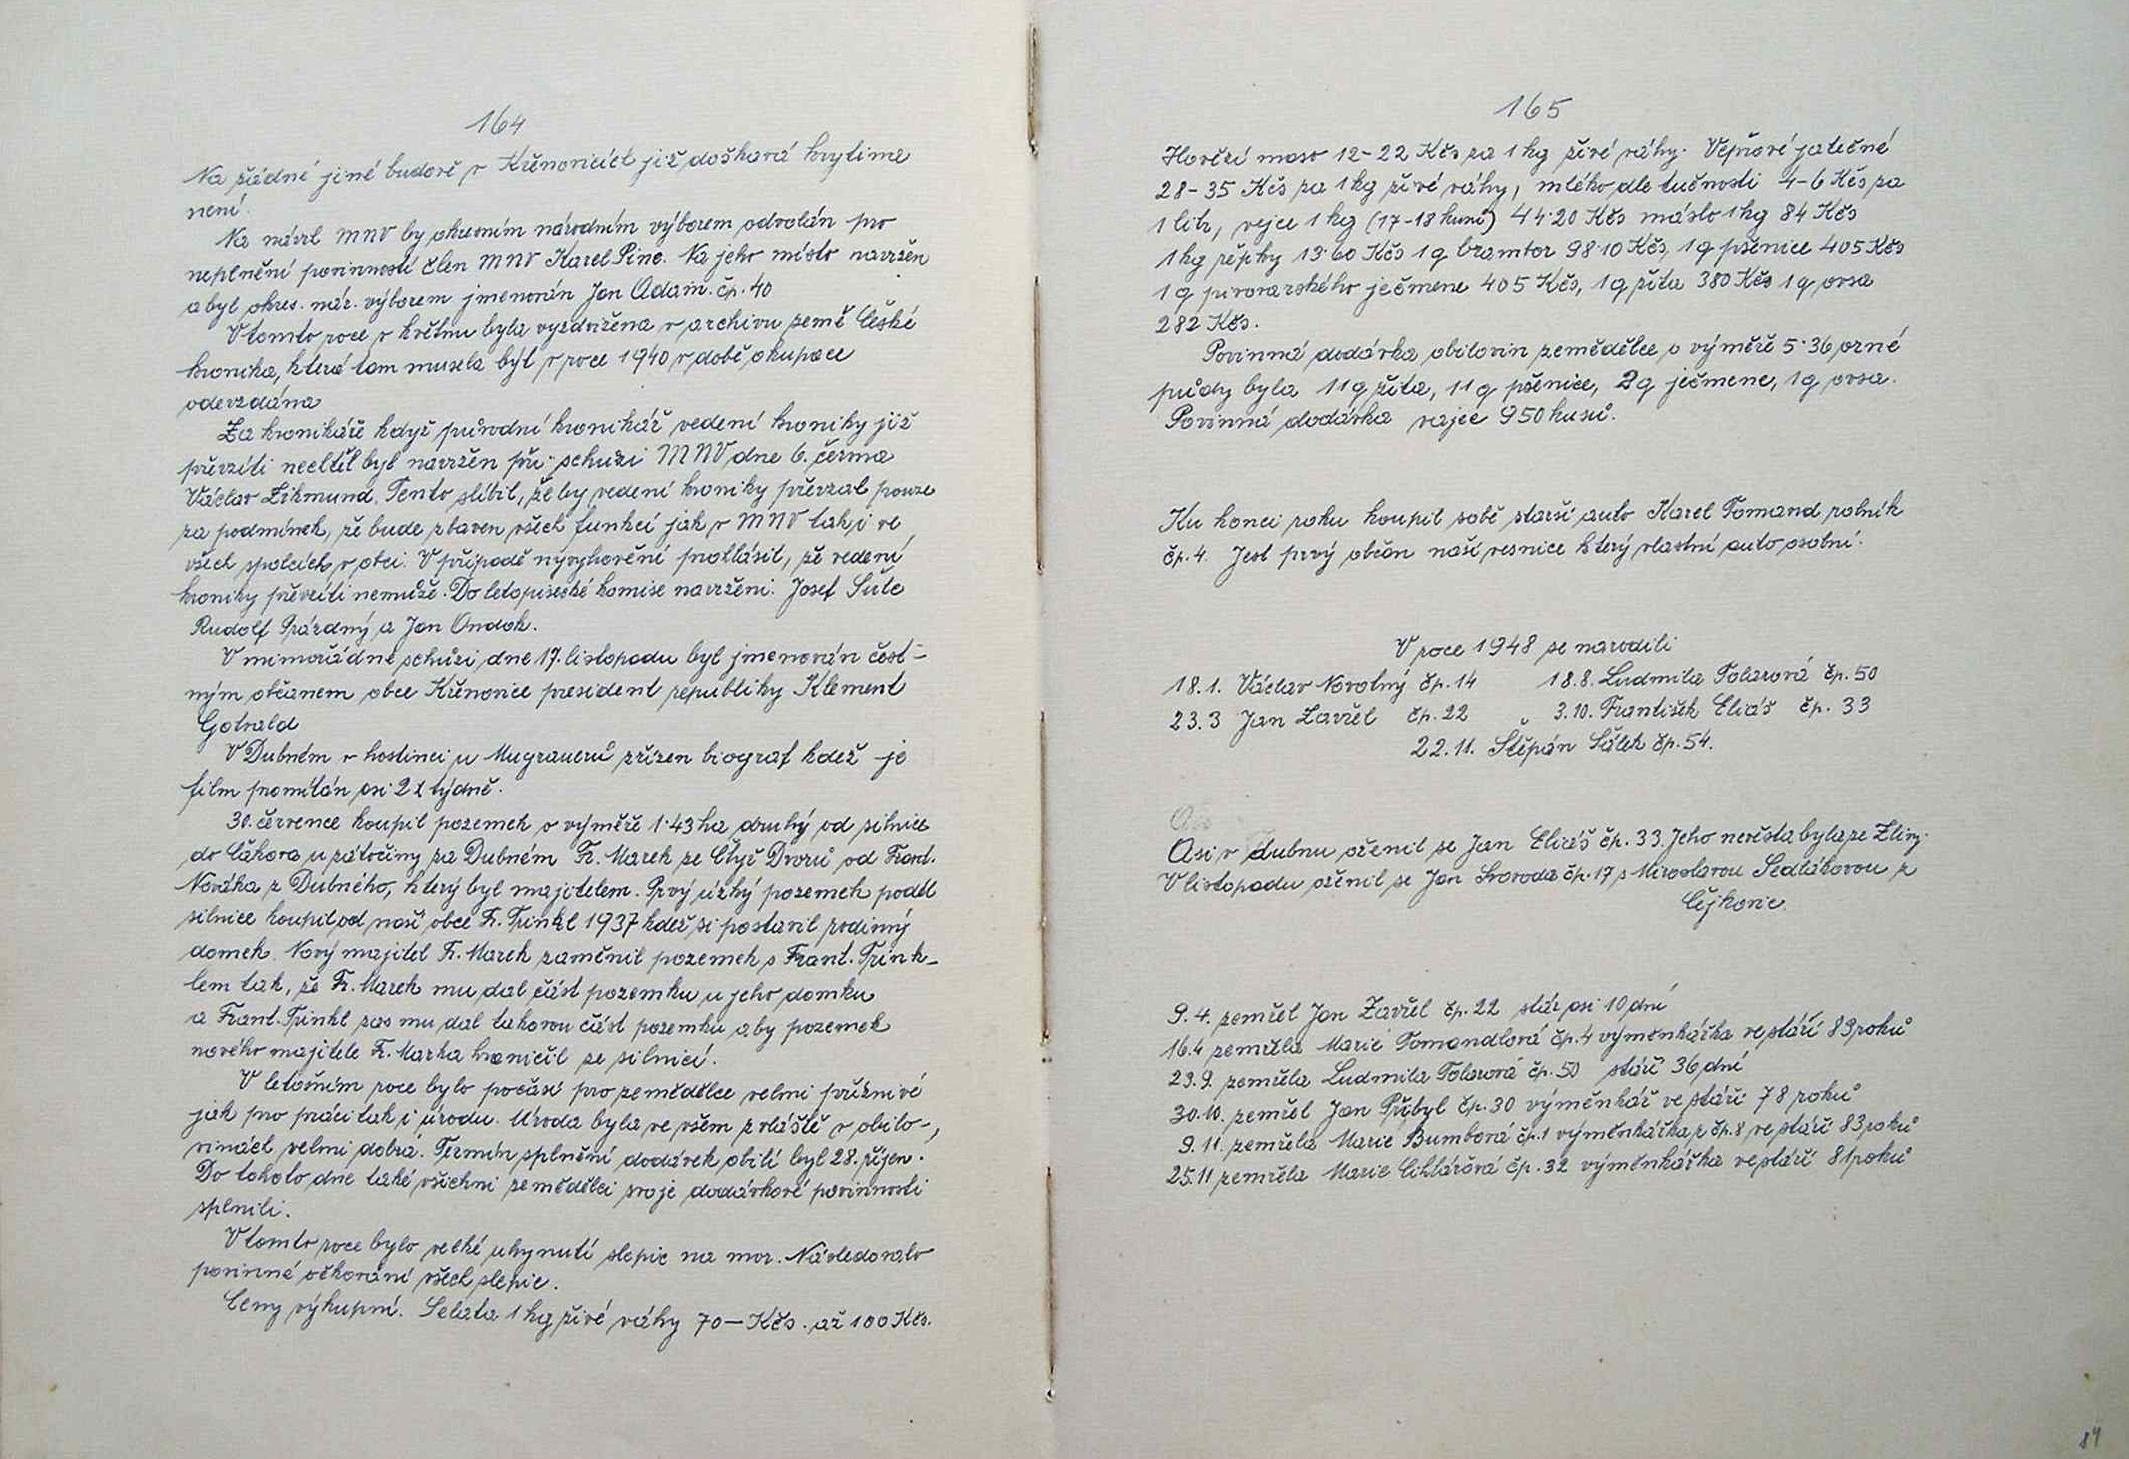 164
Na žádné jiné budově v Křenovicích již došková krytina
není.
Na návrh MNV by okresním národním výborem odvolán pro
neplnění povinností člen MNV Karel Pinc. Na jeho místo navržen
a byl okres. nár. výborem jmenován Jan Adam. čp. 40
V tomto roce v květnu byla vyzdvižena v archivu země České
kronika, která tam musela být v roce 1940 v době okupace
odevzdána
Za kronikáře když původní kronikář vedení kroniky již
převzíti nechtěl byl navržen při schůzi MNV dne 6. června
Václav Zikmund. Tento slíbil, že by vedení kroniky převzal pouze
za podmínek, že bude zbaven všech funkcí jak v MNV tak i ve
všech spolcích v obci. V případě nevyhovění prohlásil, že vedení
kroniky převzíti nemůže. Do letopisecké komise navrženi: Josef Šulc
Rudolf Prázdný a Jan Ondok.
V mimořádné schůzi dne 17. listopadu byl jmenován čest-
ným občanem obce Křenovice president republiky Klement
Gotvald
V Dubném v hostinci u Mugrauerů zřízen biograf kdež je
film promítán asi 2x týdně.
30. července koupil pozemek o výměře 1·43 ha druhý od silnice
do Čakova u zátočiny za Dubném Fr. Marek ze Čtyř Dvorů od Frant.
Nováka z Dubného, který byl majitelem. Prvý úzký pozemek podél
silnice koupil od naší obce Fr. Trinkl 1937 kdež si postavil rodinný
domek. Nový majitel Fr. Marek zaměnil pozemek s Frant. Trink-
lem tak, že Fr. Marek mu dal část pozemku u jeho domku
a Frant. Trinkl zas mu dal takovou část pozemku aby pozemek
nového majitele Fr. Marka hraničil se silnicí.
V letošním roce bylo počasí pro zemědělce velmi příznivé
jak pro práci tak i úrodu. Úroda byla ve všem zvláště v obilo-
vinách velmi dobrá. Termín splnění dodávek obilí byl 28. říjen.
Do tohoto dne také všichni zemědělci svoje dodávkové povinnosti
splnili.
V tomto roce bylo velké uhynutí slepic na mor. Následovalo
povinné očkování všech slepic.
Ceny výkupní. Selata 1 kg živé váhy 70— Kčs. až 100 Kčs.
165
Hovězí maso 12-22 Kčs za 1 kg živé váhy. Vepřové jatečné
28-35 Kčs za 1 kg živé váhy, mléko dle tučnosti 4-6 Kčs za
1 litr, vejce 1 kg (17-18 kusů) 44·20 Kčs máslo 1 kg 84 Kčs
1 kg řepky 13·60 Kčs 1 q brambor 98·10 Kčs, 1 q pšenice 405 Kčs
1 q pivovarského ječmene 405 Kčs, 1 q žita 380 Kčs 1 q ovsa
282 Kčs.
Povinná dodávka obilovin zemědělce o výměře 5·36 orné
půdy byla 11 q žita, 11 q pšenice, 2 q ječmene, 1 q ovsa.
Povinná dodávka vajec 950 kusů.
Ku konci roku koupil sobě starší auto Karel Tomand rolník
čp. 4. Jest prvý občan naší vesnice který vlastní auto osobní.
V roce 1948 se narodili
18.1. Václav Novotný čp. 14 18.8. Ludmila Tolarová čp. 50
23.3 Jan Zavřel čp. 22 „ 3.10. František Eliáš čp. 33
22.11. Štěpán Šálek čp. 54.
Asi v dubnu oženil se Jan Eliáš čp. 33. Jeho nevěsta byla ze Zliny.
V listopadu oženil se Jan Svoroda čp. 17 s Miroslavou Sedlákovou z
Čejkovic.
9. 4. zemřel Jan Zavřel čp. 22 stár asi 10 dní
16.4 zemřela Marie Tomandlová čp. 4 výměnkářka ve stáří 83 roků
23.9. zemřela Ludmila Tolarová čp. 50 stáří 36 dní
30.10. zemřel Jan Přibyl čp. 30 výměnkář ve stáří 78 roků
9. 11. zemřela Marie Bumbová čp. 1 výměnkářka z čp. 8 ve stáří 83 roků
25.11 zemřela Marie Cihlářová čp. 32 výměnkářka ve stáří 81 roků
84